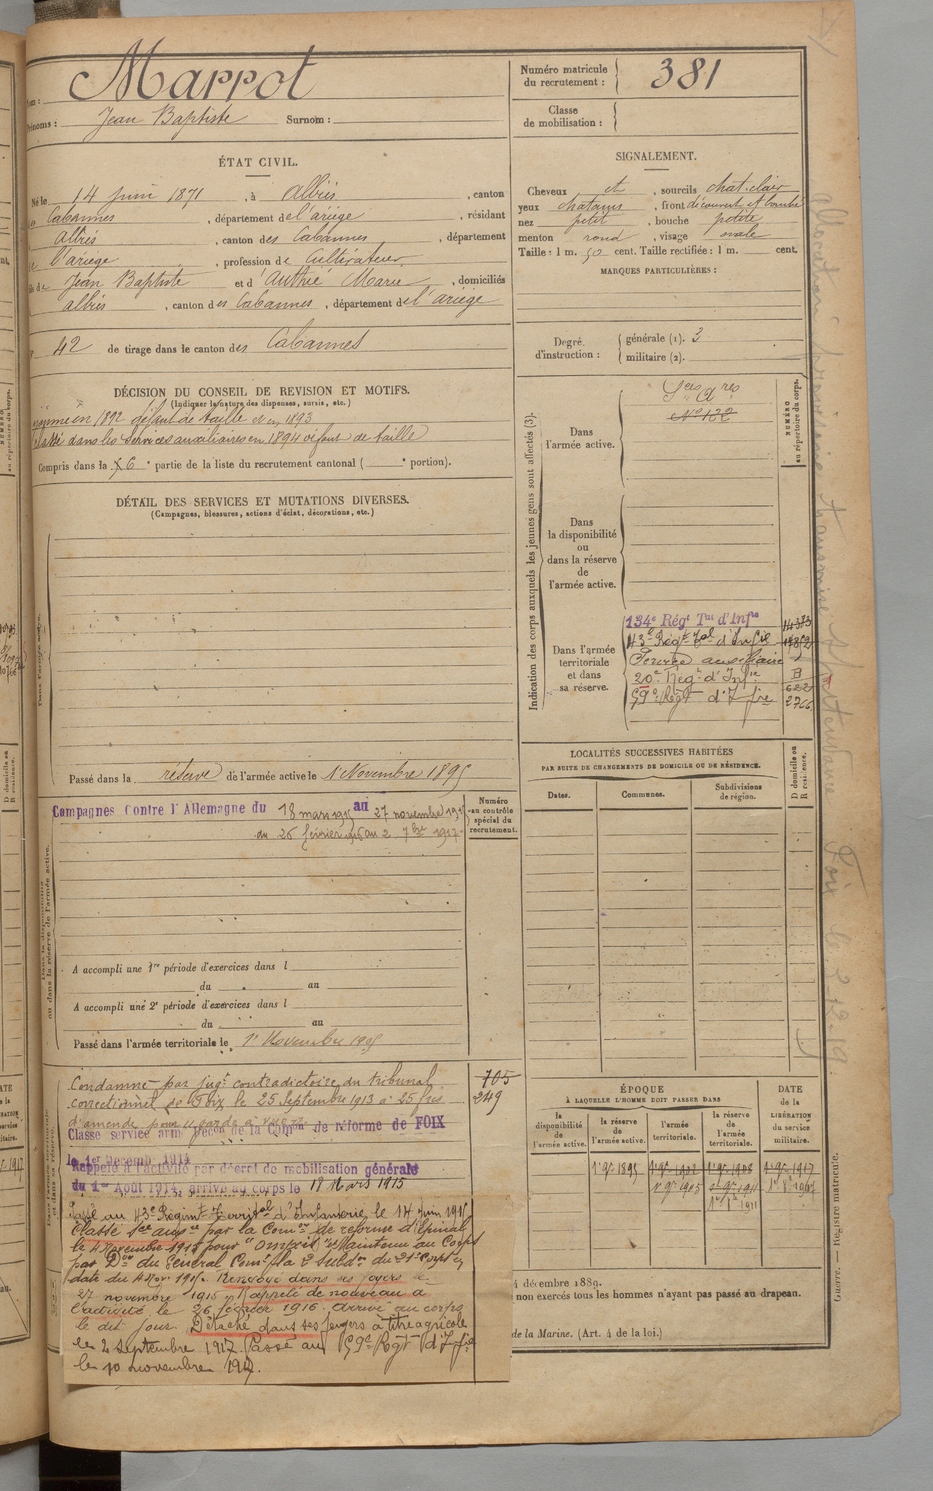 Nom : Marrot
Prénoms : Jean Baptiste Surnom :
Numéro matricule du recrutement : 381
Classe de mobilisation :
ÉTAT CIVIL.
Né le 14 Juin 1871, à Albiès, canton
de Cabannes, département de l'ariège, résidant
Albiès, canton des Cabannes, département
de l'ariège, profession de Cultivateur
fils de Jean Baptiste et d'Authié Marie, domiciliés
albiès, canton des Cabannes, département de l'ariège
N° 42 de tirage dans le canton des Cabannes
SIGNALEMENT.
Cheveux et, sourcils chat. clair
yeux chatains, front découvert et bombé
nez petit, bouche petite
menton rond, visage ovale
Taille : 1 m. 50 cent. Taille rectifiée : 1 m. cent.
MARQUES PARTICULIÈRES :
Degré d'instruction : générale (1). 3
militaire (2).
DÉCISION DU CONSEIL DE REVISION ET MOTIFS.
(Indiquer la nature des dispenses, sursis, etc.)
Ajourné en 1892 défaut de taille et en 1893
Classé dans les Services auxiliaires en 1894 défaut de taille
Compris dans la 6e partie de la liste du recrutement cantonal ( e portion).
DÉTAIL DES SERVICES ET MUTATIONS DIVERSES.
(Campagnes, blessures, actions d'éclat, décorations, etc.)
Dans l'armée active.
Passé dans la réserve de l'armée active le 1er Novembre 1895
Indication des corps auxquels les jeunes gens sont affectés (3).
NUMÉRO au répertoire du corps.
Dans l'armée active.
Sces ares
N° 122
Dans la disponibilité ou dans la réserve de l'armée active.
Dans l'armée territoriale et dans sa réserve.
134e Régt Tal d'Infie
43e Régt Tal d'Infie
Service auxiliaire
20e Régt d'Infie
59e Régt d'Infie
622
2766
LOCALITÉS SUCCESSIVES HABITÉES
PAR SUITE DE CHANGEMENTS DE DOMICILE OU DE RÉSIDENCE.
Dates.
Communes.
Subdivisions de région.
D domicile ou R résidence.
Campagnes Contre l'Allemagne du 18 mars 1915 au 27 novembre 1915
du 26 février 1916 au 2 7bre 1917
Numéro au contrôle spécial du recrutement.
Dans la disponibilité ou dans la réserve de l'armée active.
A accompli une 1re période d'exercices dans l
du au
A accompli une 2e période d'exercices dans l
du au
Passé dans l'armée territoriale le 1er Novembre 1905
705
249
Condamné par jugt contradictoire du tribunal
correctionnel de Foix le 25 Septembre 1913 à 25 frs
d'amende pour
Classé service armé Décon de la Comon de réforme de FOIX
le 1er Décemb. 1914
Rappelé à l'activité par décret de mobilisation générale
du 1er Août 1914, arrivé au corps le 18 Mars 1915
Passé au 43e Régimt Territal d'Infanterie le 14 Juin 1915
Classé Sce auxre par la Comon de réforme d'Epinal
le 4 Novembre 1915 pour Maintenu au Corps
par Don du Général Comt la 2e Subdon du 21e Corps en
date du 4 Nov. 1915. Renvoyé dans ses foyers le
27 novembre 1915. Rappelé de nouveau à
l'activité le 26 février 1916. Arrivé au corps
le dit jour. Détaché dans ses foyers à titre agricole
le 2 septembre 1917. Passé au 59e Régt d'Infie
le 10 novembre 1917.
ÉPOQUE
À LAQUELLE L'HOMME DOIT PASSER DANS
la disponibilité de l'armée active.
la réserve de l'armée active.
l'armée territoriale.
la réserve de l'armée territoriale.
DATE de la LIBÉRATION du service militaire.
1er 9bre 1895
1er 9bre 1902
1er 9bre 1908
1er 9bre 1917
1er 9bre 1905
1er 9bre 1911
4 décembre 1889.
non exercés tous les hommes n'ayant pas passé au drapeau.
de la Marine. (Art. 4 de la loi.)
Guerre. — Registre matricule.